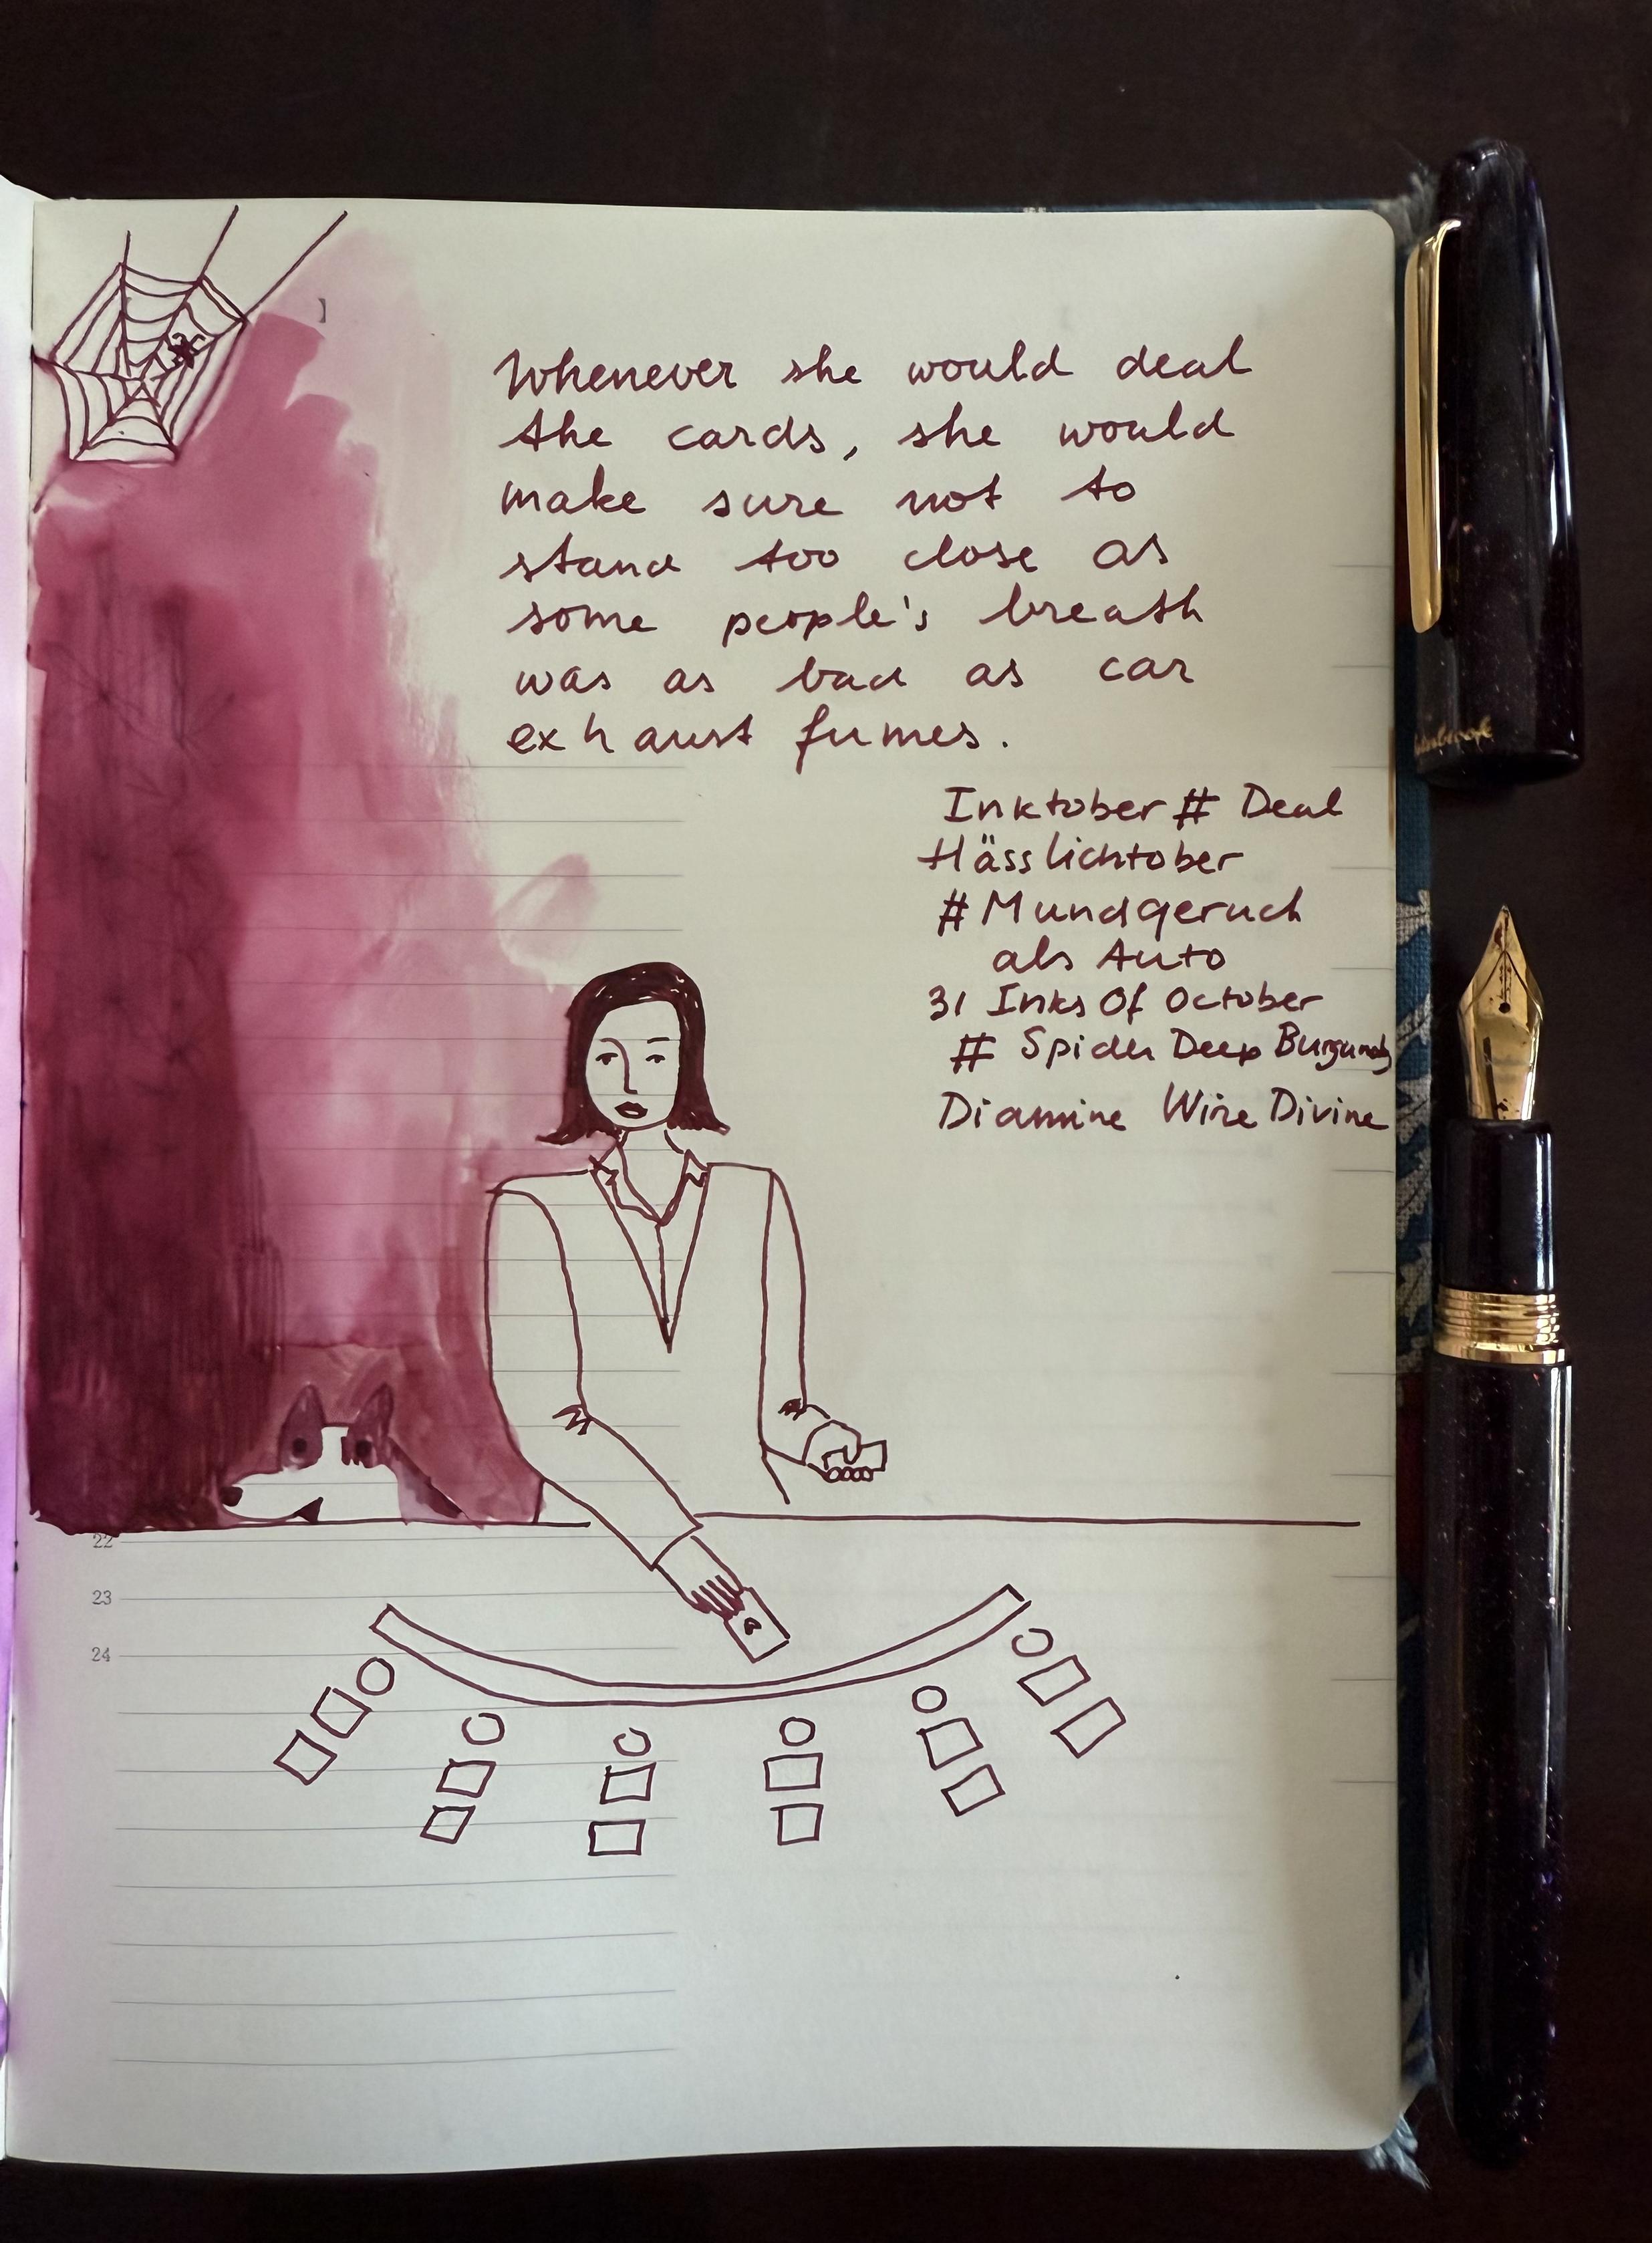 Whenever she would deal
the cards, she would
make sure not to
stand too close as
some people's breath
was as bad as car
exhaust fumes.
Inktober # Deal
Hässlichtober
# Mundgeruch
als Auto
31 Inks Of October
# Spider Deep Burgundy
Diamine Wine Divine
22
23
24